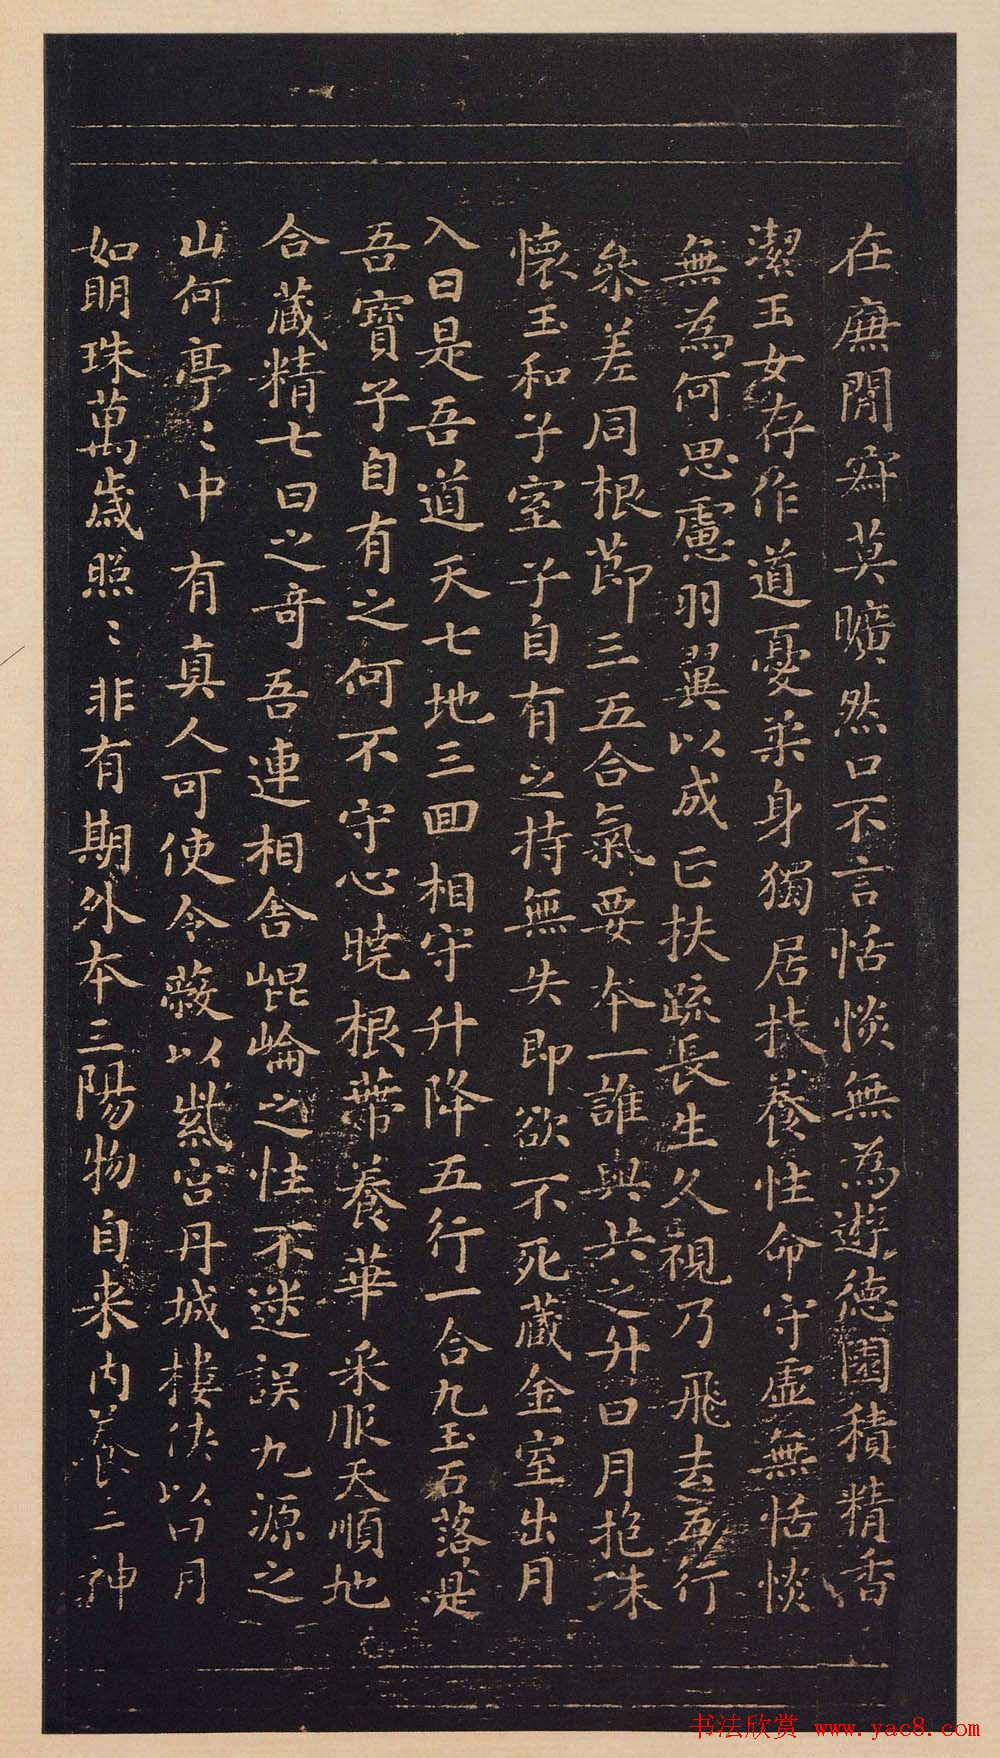 在廡閒㝧莫曠然口不言恬惔無為遊德園積精香
潔玉女存作道憂柔身獨居扶養性命守虛無恬惔
無為何思慮羽翼以成正扶疏長生久視乃飛去五行
參差同根莭三五合氣要本一誰與共之升日月抱珠
懷玉和子室子自有之持無失即欲不死藏金室出月
入日是吾道天七地三回相守升降五行一合九玉石落是
吾寶子自有之何不守心曉根蔕養華采服天順地
合藏精七日之奇吾連相舍崐崘之性不迷誤九源之
山何亭〻中有真人可使令蔽以紫宫丹城樓俠以日月
如明珠萬歲照〻非有期外本三陽物自来内養三神
书法欣赏 www.yac8.com